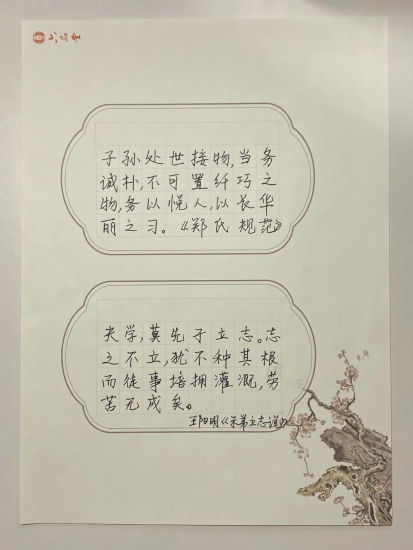 子孙处世接物,当务
诚朴,不可置纤巧之
物,务以悦人,以长华
丽之习。《郑氏规范》
夫学,莫先于立志。志
之不立,犹不种其根
而徒事培拥灌溉,劳
苦无成矣。
王阳明《示弟立志说》